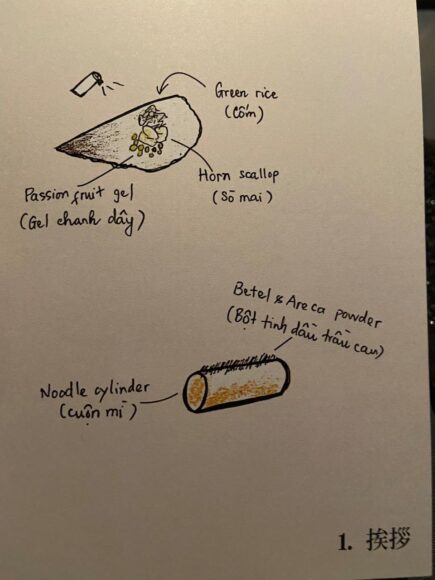 Green rice
(Cốm)
Horn scallop
(Sò mai)
Passion fruit gel
(Gel chanh dây)
Betel & Areca powder
(Bột tinh dầu trầu cau)
Noodle cylinder
(cuộn mì)
1. 挨拶